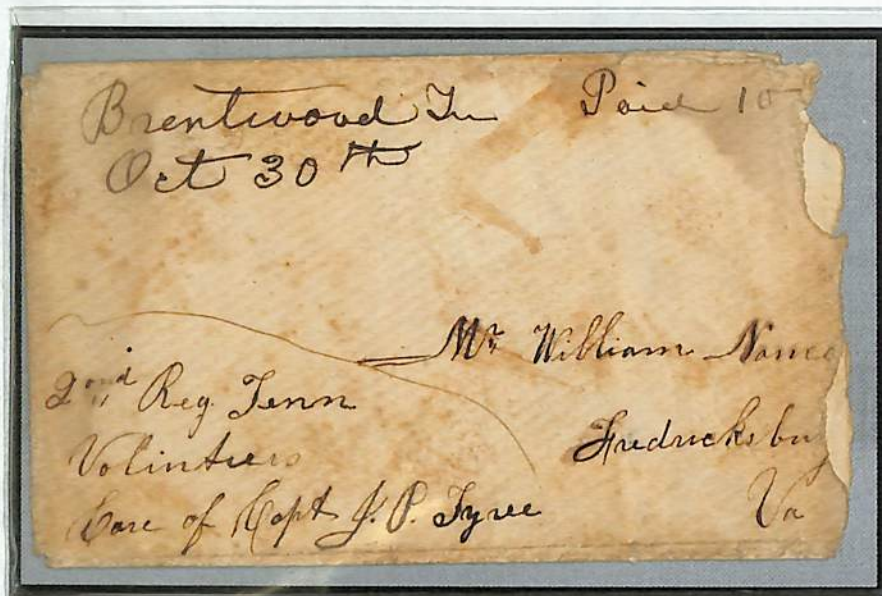 Brentwood Tn Paid 10
Oct 30th
Mr William Nance
Fredricksbu
2ond Reg Tenn
Volinteers
Va
Care of Capt J. P. Tyree